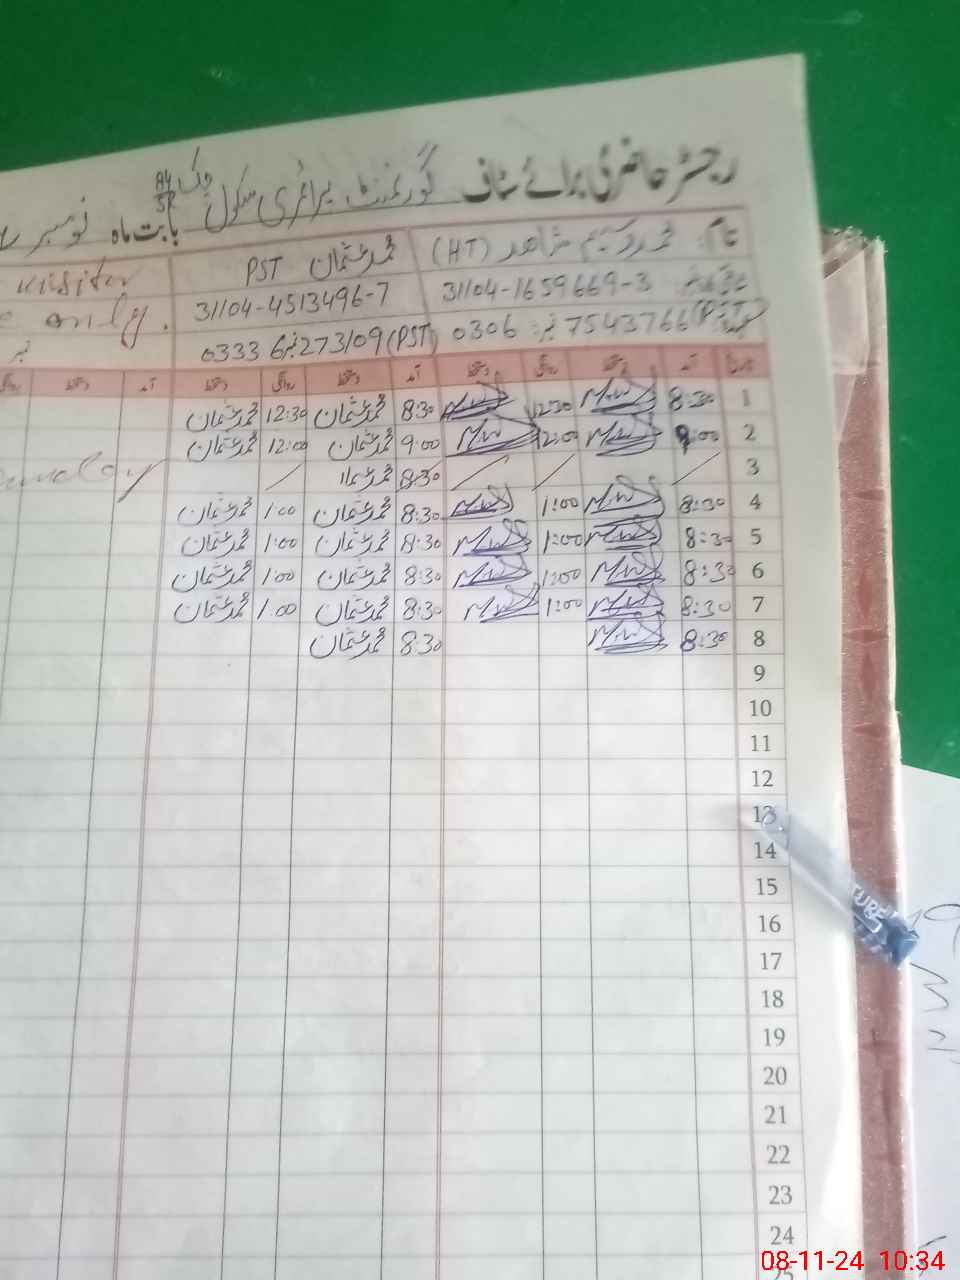 رجسٹر حاضری برائے سٹاف گورنمنٹ پرائمری سکول چک 84/5R بابت ماہ نومبر
نام: محمد وسیم شاھد (HT) محمد عثمان PST visitor
31104-1659669-3 31104-4513496-7 only.
0306 7543766 نمبر (PST) 0333 6273109 نمبر
آمد دستخط روانگی دستخط آمد دستخط روانگی دستخط آمد دستخط
1 8:30 M.W 12:30 M.W 8:30 محمد عثمان 12:30 محمد عثمان
2 9:00 M.W 12:00 M.W 9:00 محمد عثمان 12:00 محمد عثمان
3 8:30 Sunday
4 8:30 M.W 1:00 M.W 8:30 محمد عثمان 1:00 محمد عثمان
5 8:30 M.W 1:00 M.W 8:30 محمد عثمان 1:00 محمد عثمان
6 8:30 M.W 1:00 M.W 8:30 محمد عثمان 1:00 محمد عثمان
7 8:30 M.W 1:00 M.W 8:30 محمد عثمان 1:00 محمد عثمان
8 8:30 M.W 8:30 محمد عثمان
9
10
11
12
13
14
15
16
17
18
19
20
21
22
23
24
25
08-11-24 10:34